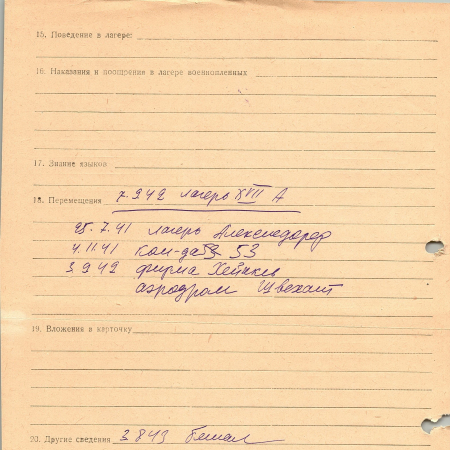 15. Поведение в лагере:
16. Наказания и поощрения в лагере военнопленных
17. Знание языков
18. Перемещения 7.9 42 лагерь XVII А
25.7.41 лагерь Александорф
4.11.41 ком-да 53
3.9 42 фирма Хейнкель
аэродром Швехат
19. Вложения в карточку
20. Другие сведения 3 8 43 бежал